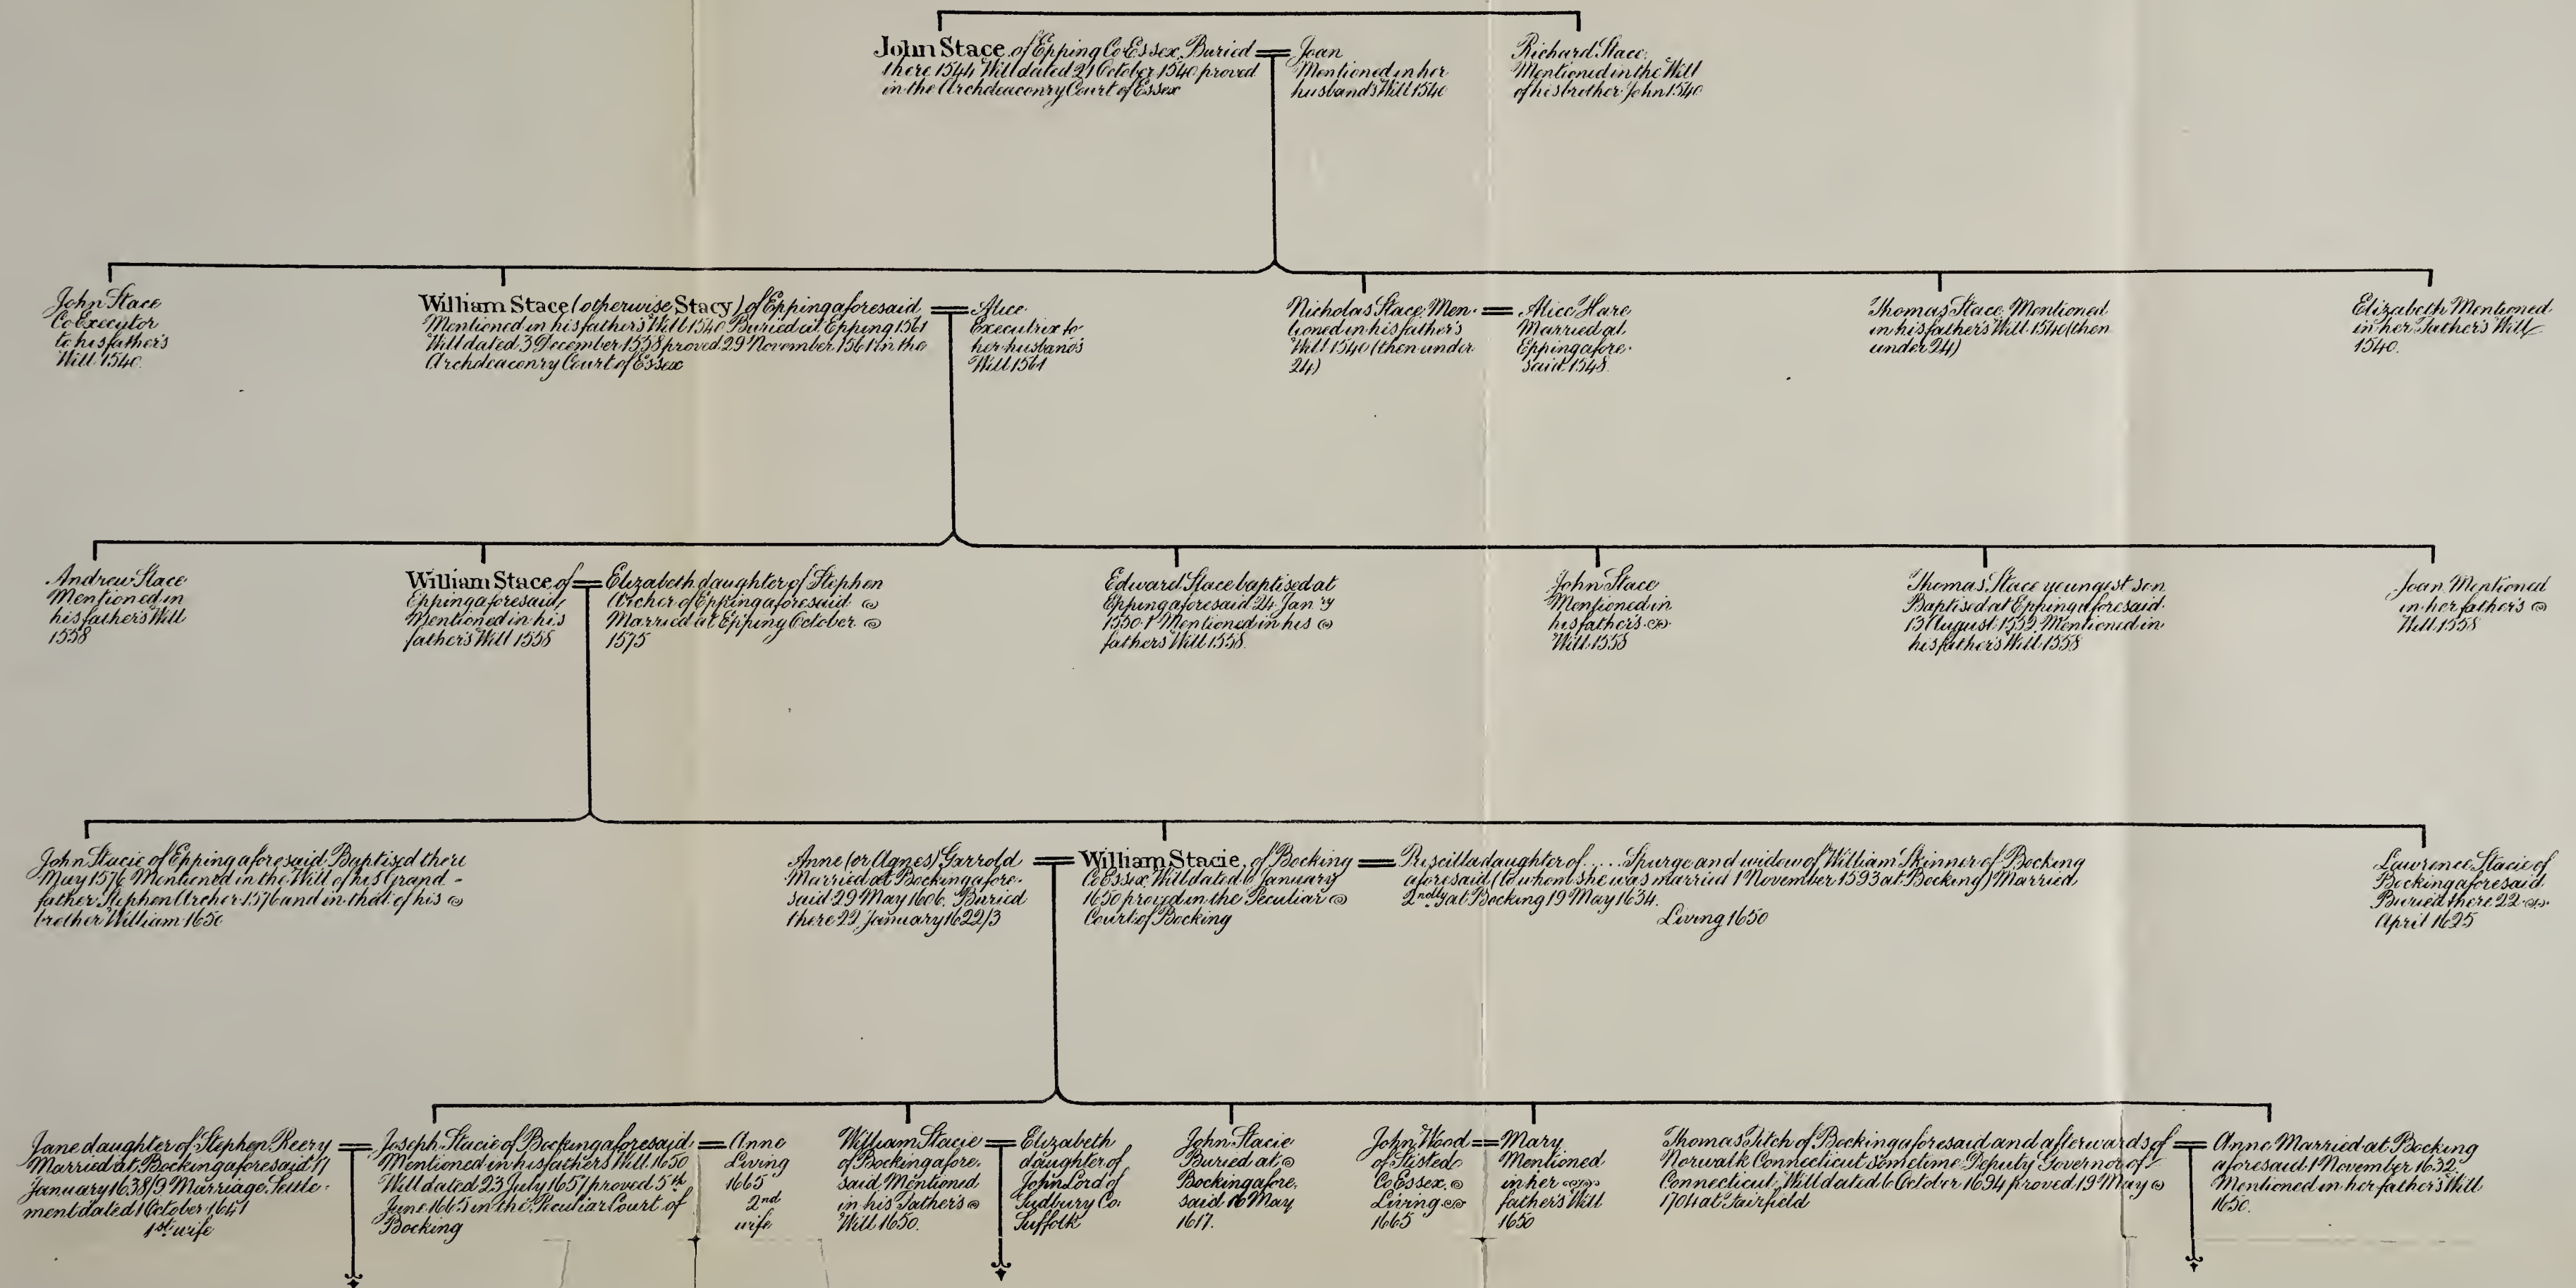 John Stace of Epping Co Essex Buried
there 1544 Will dated 21 October 1540 proved
in the Archdeaconry Court of Essex
Joan
Mentioned in her
husbands Will 1540
Richard Stace
Mentioned in the Will
of his brother John 1540
John Stace
Co Executor
to his father's
Will 1540.
William Stace (otherwise Stacy) of Epping aforesaid
Mentioned in his father's Will 1540 Buried at Epping 1561
Will dated 3 December 1558 proved 29 November 1561 in the
Archdeaconry Court of Essex
Alice
Executrix to
her husband's
Will 1561
Nicholas Stace Men-
tioned in his father's
Will 1540 (then under
24)
Alice Hare
Married at
Epping afore-
said 1548.
Thomas Stace Mentioned
in his father's Will 1540 (then
under 24)
Elizabeth Mentioned
in her Father's Will
1540.
Andrew Stace
Mentioned in
his father's Will
1558
William Stace of
Epping aforesaid,
Mentioned in his
father's Will 1558
Elizabeth daughter of Stephen
Archer of Epping aforesaid
Married at Epping October
1575
Edward Stace baptised at
Epping aforesaid 24 Jan ry
1550-1 Mentioned in his
fathers Will 1558.
John Stace
Mentioned in
his father's
Will 1558
Thomas Stace youngest son
Baptised at Epping aforesaid
13 August 1559 Mentioned in
his father's Will 1558
Joan Mentioned
in her father's
Will 1558
John Stacie of Epping aforesaid Baptised there
May 1576 Mentioned in the Will of his Grand-
father Stephen Archer 1576 and in that of his
brother William 1650
Anne (or Agnes) Garrold
Married at Bocking afore-
said 29 May 1606. Buried
there 22 January 1622/3
William Stacie, of Bocking
Co Essex Will dated 6 January
1650 proved in the Peculiar
Court of Bocking
Priscilla daughter of .... Spurge and widow of William Skinner of Bocking
aforesaid (to whom she was married 1 November 1593 at Bocking) Married
2ndly at Bocking 19 May 1634.
Living 1650
Lawrence Stacie of
Bocking aforesaid
Buried there 22
April 1625
Jane daughter of Stephen Reery
Married at Bocking aforesaid 17
January 1638/9 Marriage Settle-
ment dated 1 October 1641
1st wife
Joseph Stacie of Bocking aforesaid
Mentioned in his fathers Will 1650
Will dated 23 July 1657 proved 5th
June 1665 in the Peculiar Court of
Bocking
Anne
Living
1665
2nd
wife
William Stacie
of Bocking afore-
said Mentioned
in his Father's
Will 1650.
Elizabeth
daughter of
John Lord of
Sudbury Co.
Suffolk
John Stacie
Buried at
Bocking afore-
said 16 May
1617.
John Wood
of Stisted
Co Essex
Living
1665
Mary
Mentioned
in her
father's Will
1650
Thomas Fitch of Bocking aforesaid and afterwards of
Norwalk Connecticut sometime Deputy Governor of
Connecticut, Will dated 6 October 1694 proved 19 May
1704 at Fairfield
Anne Married at Bocking
aforesaid 1 November 1632
Mentioned in her father's Will
1650.